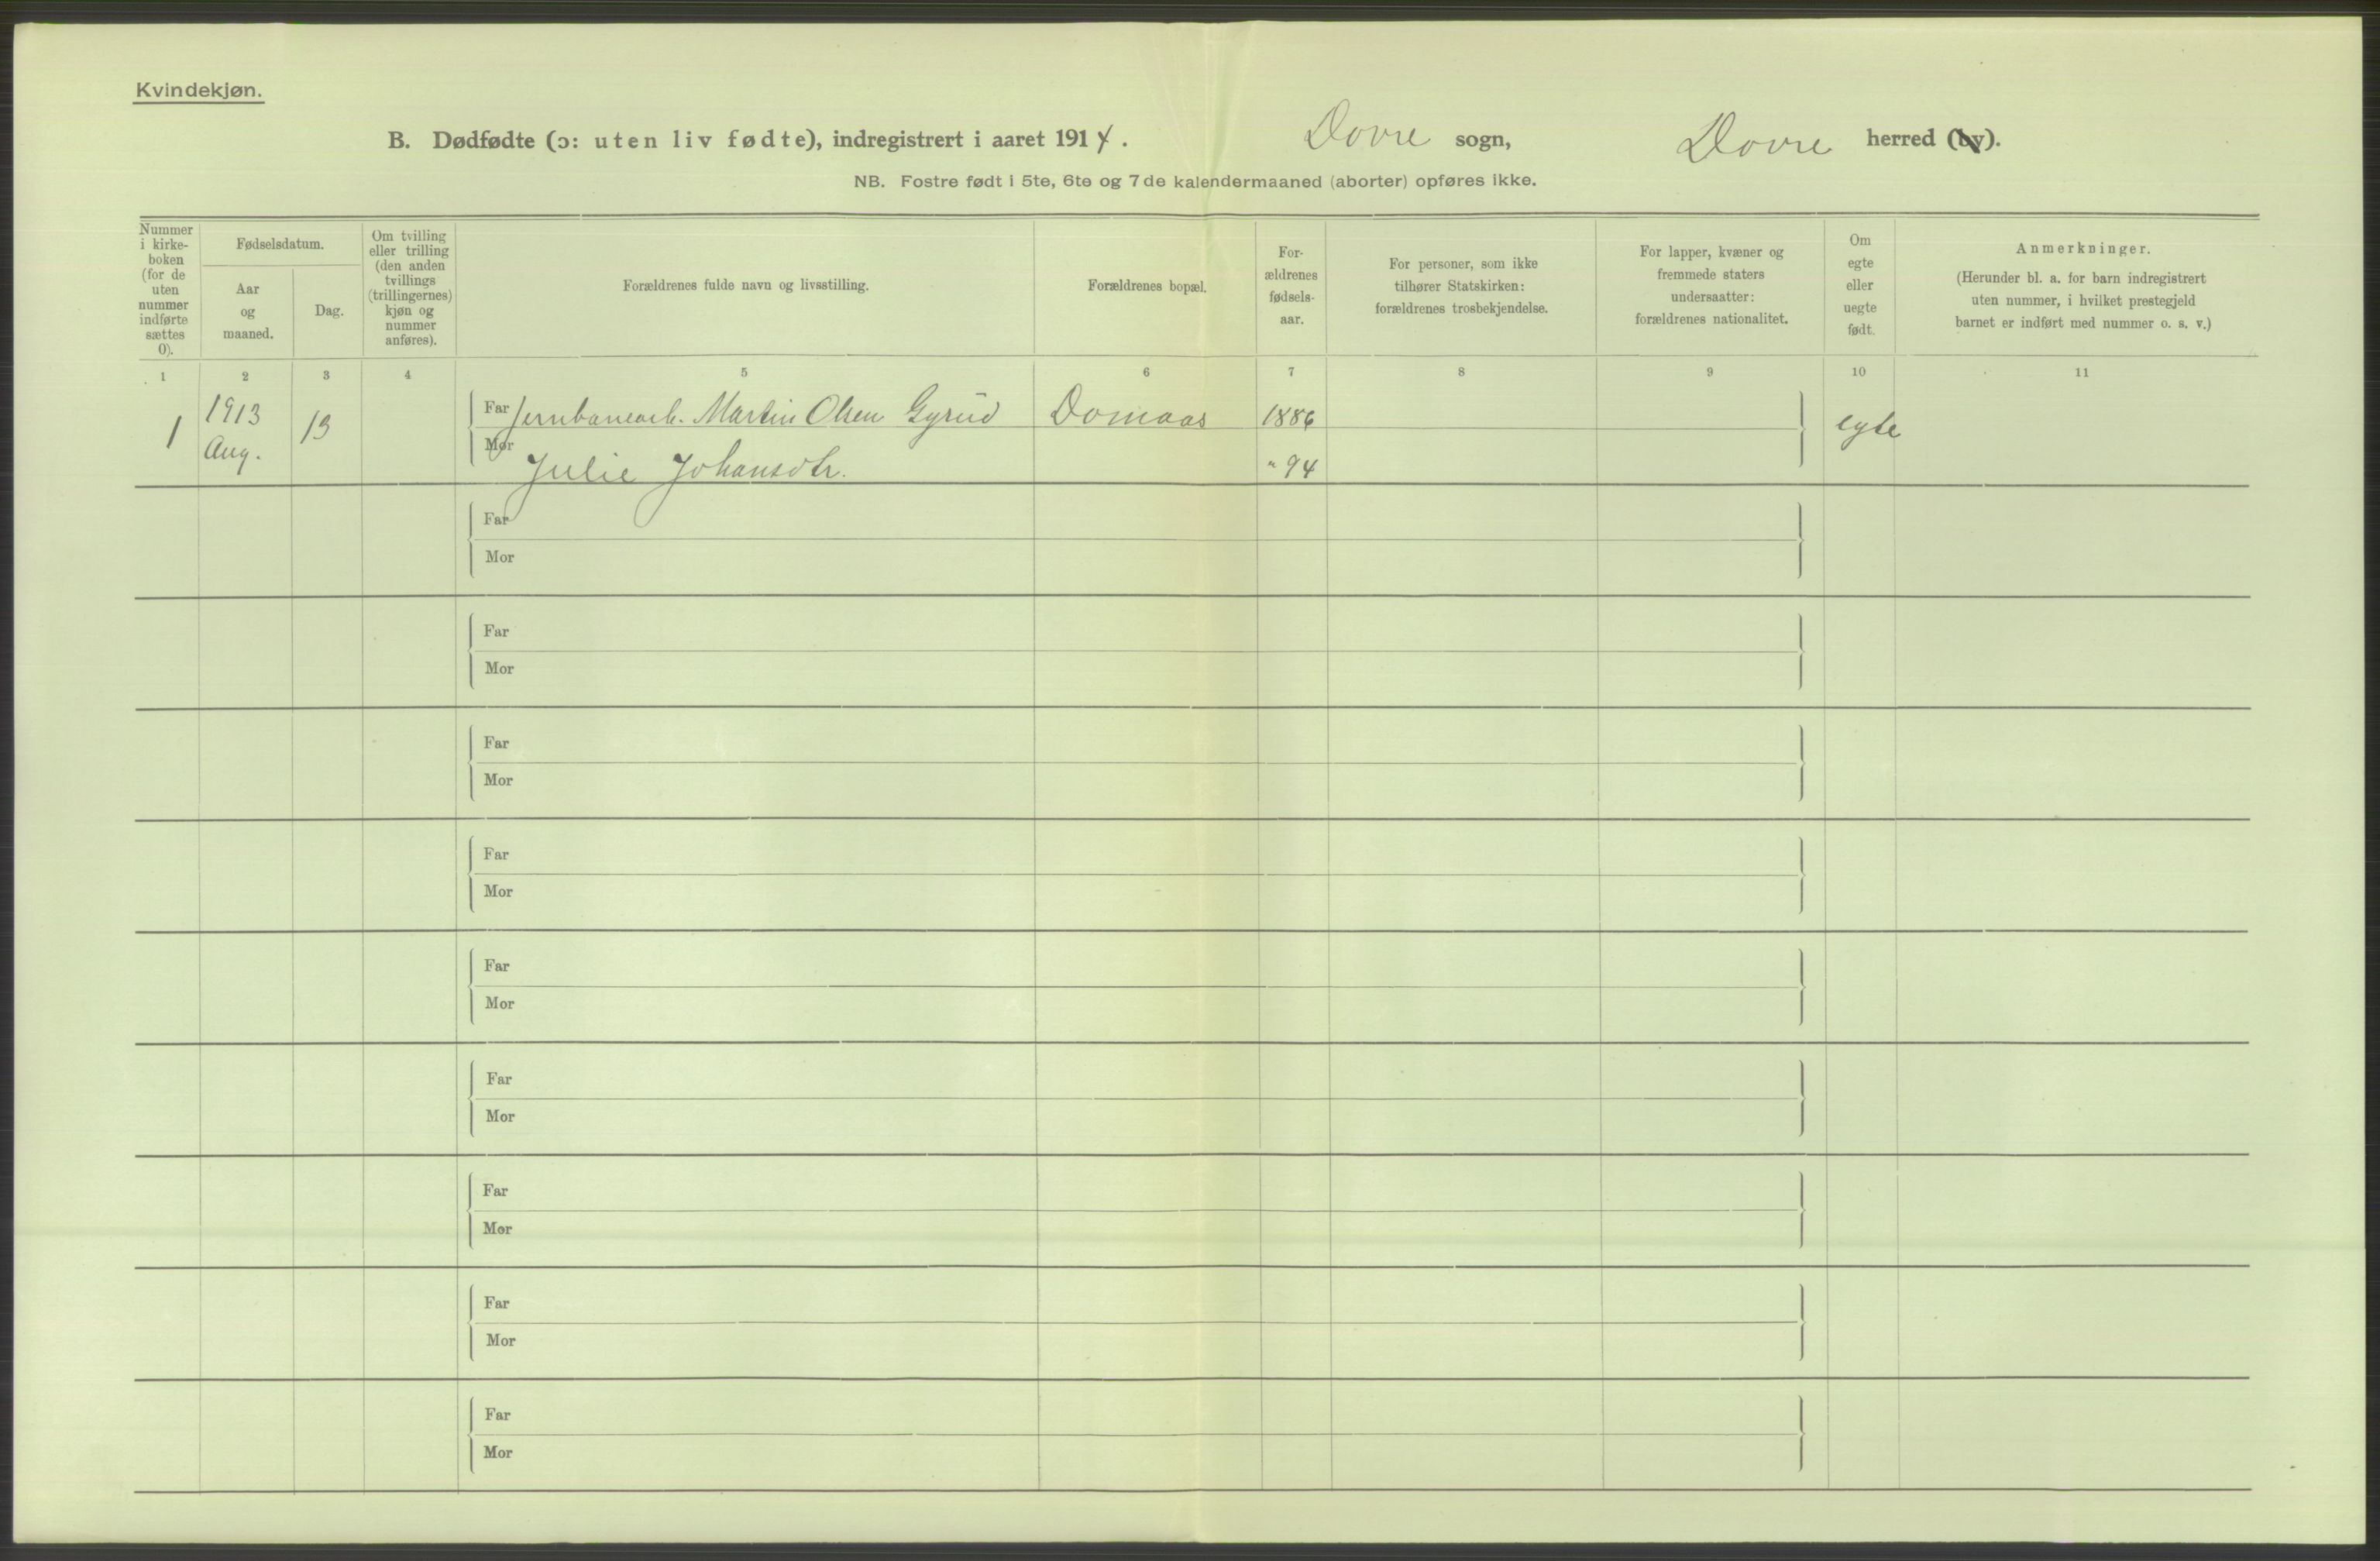 Kvindekjøn.
B. Dødfødte (ɔ: uten liv fødte), indregistrert i aaret 1914. Dovre sogn, Dovre herred (by).
NB. Fostre født i 5te, 6te og 7de kalendermaaned (aborter) opføres ikke.
Nummer
i kirke-
boken
(for de
uten
nummer
indførte
sættes
0).
Fødselsdatum.
Aar
og
maaned.
Dag.
Om tvilling
eller trilling
(den anden
tvillings
(trillingernes)
kjøn og
nummer
anføres).
Forældrenes fulde navn og livsstilling.
Forældrenes bopæl.
For-
ældrenes
fødsels-
aar.
For personer, som ikke
tilhører Statskirken:
forældrenes trosbekjendelse.
For lapper, kvæner og
fremmede staters
undersaatter:
forældrenes nationalitet.
Om
egte
eller
uegte
født.
Anmerkninger.
(Herunder bl. a. for barn indregistrert
uten nummer, i hvilket prestegjeld
barnet er indført med nummer o. s. v.)
1 2 3 4 5 6 7 8 9 10 11
1 1913 Aug. 13 Far Jernbanearb. Martin Olsen Gyrud Domaas 1886 egte
Mor Julie Johansdtr. " 94
Far
Mor
Far
Mor
Far
Mor
Far
Mor
Far
Mor
Far
Mor
Far
Mor
Far
Mor
Far
Mor